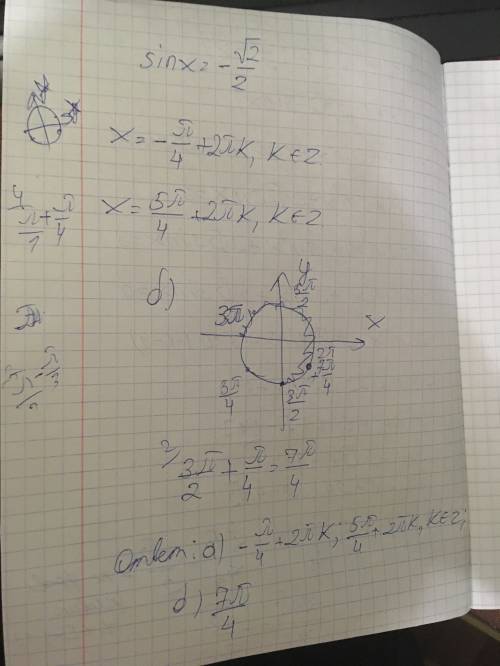 sinx = -√2/2
x = -π/4 + 2πk, k∈Z
x = 5π/4 + 2πk, k∈Z
π/1 + π/4
4
б)
y
5π/2
3π
x
2π
7π/4
5π/4
3π/2
2/ 3π/2 + π/4 = 7π/4
Ответ: а) -π/4 + 2πk; 5π/4 + 2πk, k∈Z;
б) 7π/4